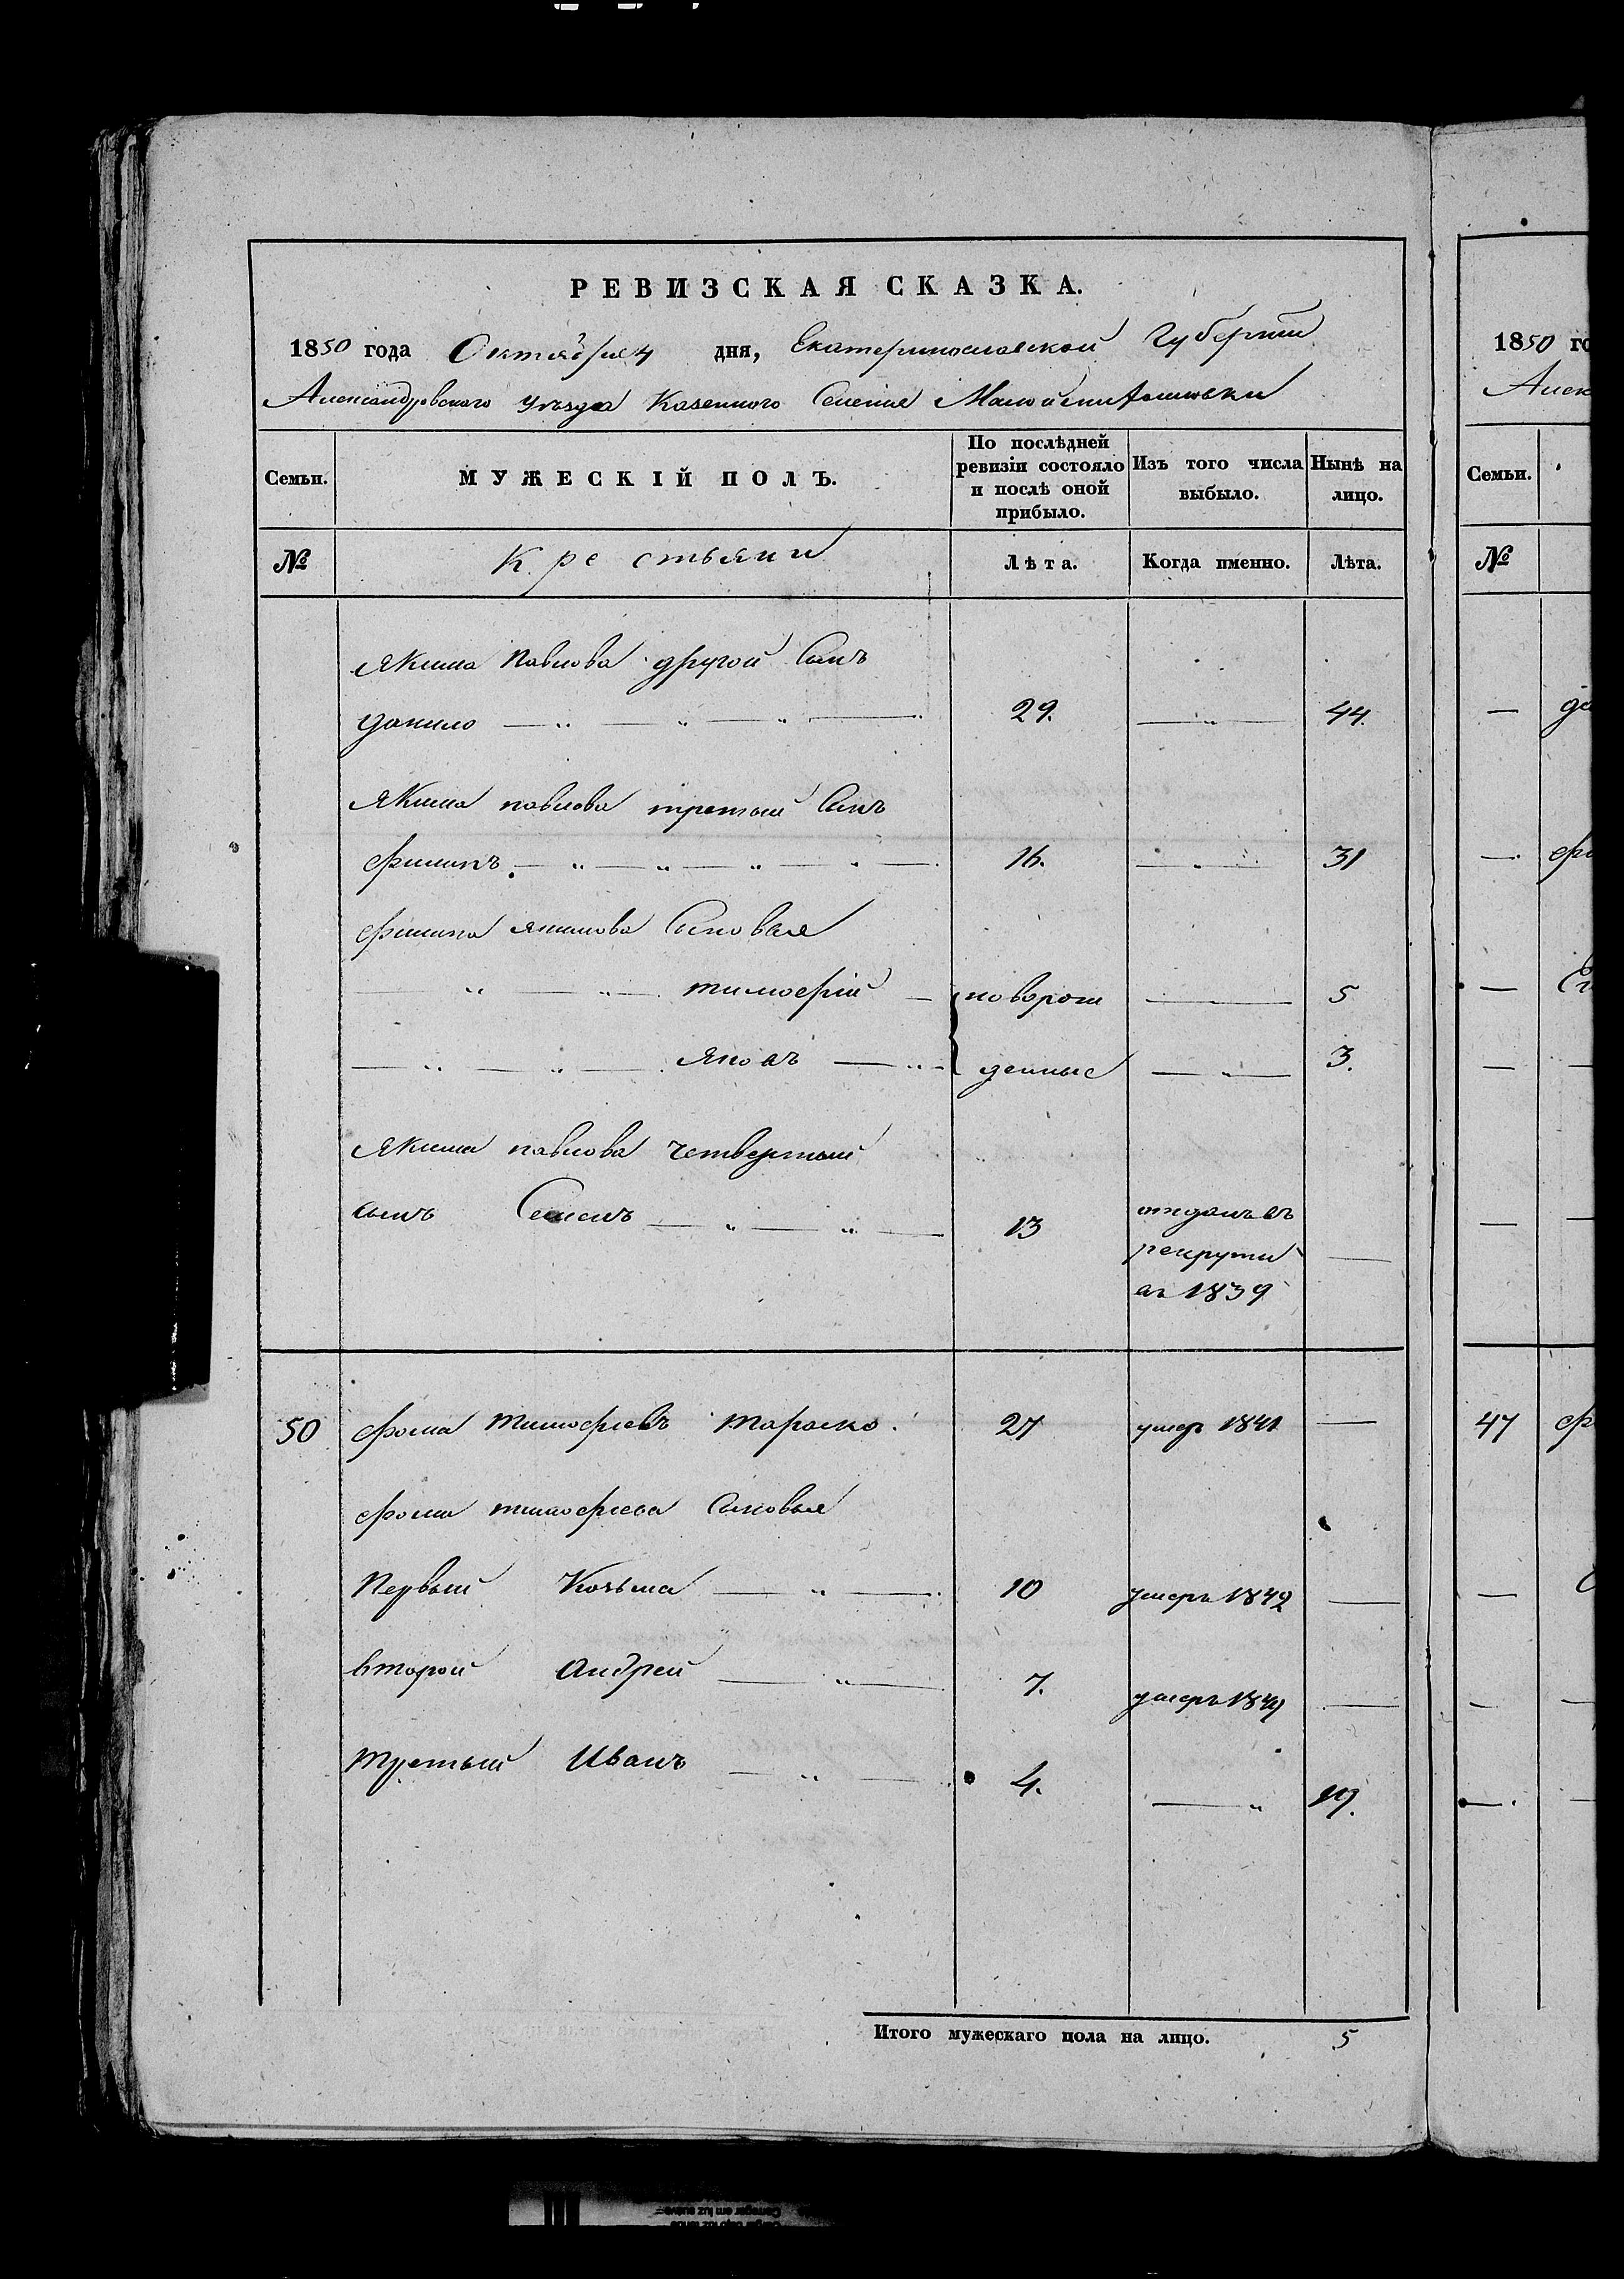 РЕВИЗСКАЯ СКАЗКА.
1850 года Октября 4 дня, Екатеринославской Губернии
Александровского уезда Казенного Селения Малой
Семьи. МУЖЕСКІЙ ПОЛЪ. По послѣдней ревизіи состояло и послѣ оной прибыло. Изъ того числа выбыло. Нынѣ на лицо.
№ Крестьяни Лѣта. Когда именно. Лѣта.
Якима Павлова другой Сынъ
данило 29. 44.
Якима павлова третый Сынъ
филипъ 16. 31
филипа якимова Сыновья
тимофій новорож 5
яковъ денные 3.
Якима павлова четвертый
сынъ Семенъ 13 отданъ въ
рекруты
въ 1839
50 фома тимофіевъ Тараско. 27 умеръ 1841
фомы тимофіева Сыновья
Первый Козьма 10 умеръ 1842
второй андрей 7. умеръ
третый иванъ 4. 19.
Итого мужескаго пола на лицо. 5
1850 го
Алек
Семьи.
№
47